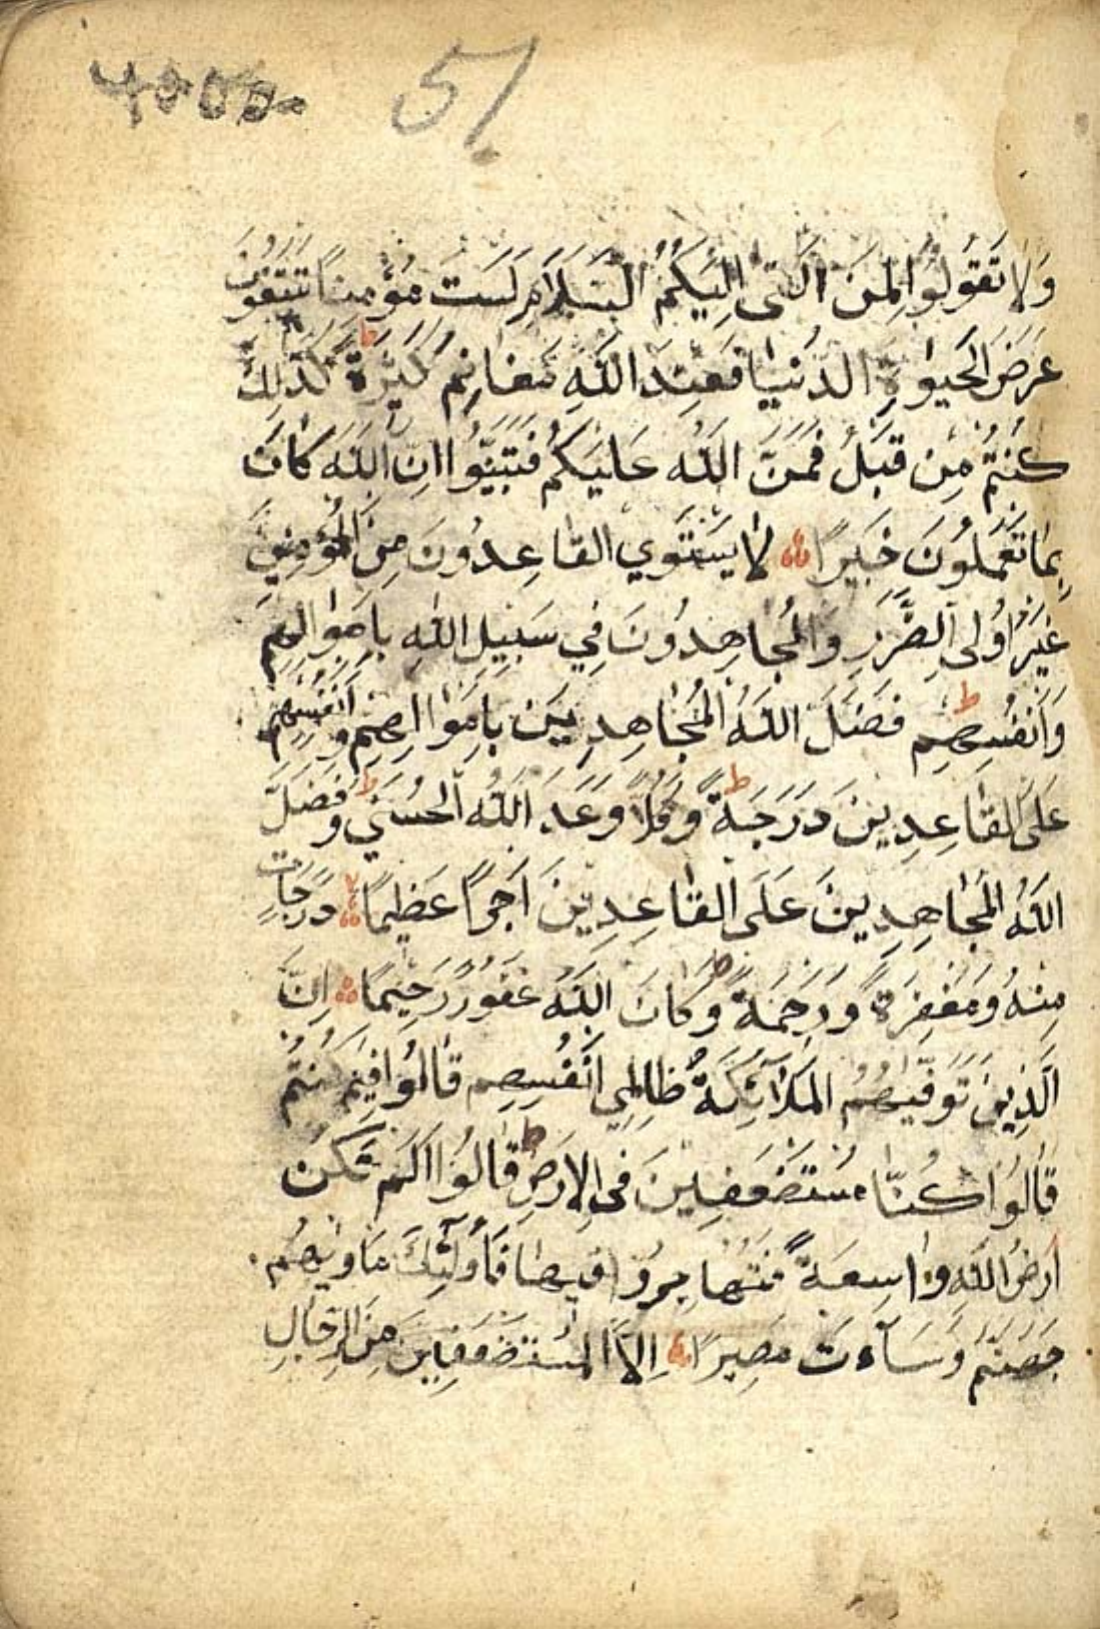 51
وَلَا تَقُولُوا لِمَنْ اَلْقٰى اِلَيْكُمُ السَّلَامَ لَسْتَ مُؤْمِنًا تَبْتَغُونَ
عَرَضَ الْحَيٰوةِ الدُّنْيَا فَعِنْدَ اللّٰهِ مَغَانِمُ كَثِيرَةٌ ط كَذٰلِكَ
كُنْتُمْ مِنْ قَبْلُ فَمَنَّ اللّٰهُ عَلَيْكُمْ فَتَبَيَّنُوا اِنَّ اللّٰهَ كَانَ
بِمَا تَعْمَلُونَ خَبِيرًا لَا يَسْتَوِي الْقَاعِدُونَ مِنَ الْمُؤْمِنِينَ
غَيْرُ اُولِى الضَّرَرِ وَالْمُجَاهِدُونَ فِي سَبِيلِ اللّٰهِ بِاَمْوَالِهِمْ
وَاَنْفُسِهِمْ ط فَضَّلَ اللّٰهُ الْمُجَاهِدِينَ بِاَمْوَالِهِمْ وَاَنْفُسِهِمْ
عَلَى الْقَاعِدِينَ دَرَجَةً ط وَكُلًّا وَعَدَ اللّٰهُ الْحُسْنٰي ط وَفَضَّلَ
اللّٰهُ الْمُجَاهِدِينَ عَلَى الْقَاعِدِينَ اَجْرًا عَظِيمًا دَرَجَاتٍ
مِنْهُ وَمَغْفِرَةً وَرَحْمَةً ط وَكَانَ اللّٰهُ غَفُورًا رَحِيمًا اِنَّ
الَّذِينَ تَوَفّٰيهُمُ الْمَلٰٓائِكَةُ ظَالِمِي اَنْفُسِهِمْ قَالُوا فِيمَ كُنْتُمْ
قَالُوا كُنَّا مُسْتَضْعَفِينَ فِى الْاَرْضِ ط قَالُوا اَلَمْ تَكُنْ
اَرْضُ اللّٰهِ وَاسِعَةً فَتُهَاجِرُوا فِيهَا فَاُولٰٓئِكَ مَاْوٰيهُمْ
جَهَنَّمُ وَسَآءَتْ مَصِيرًا اِلَّا الْمُسْتَضْعَفِينَ مِنَ الرِّجَالِ